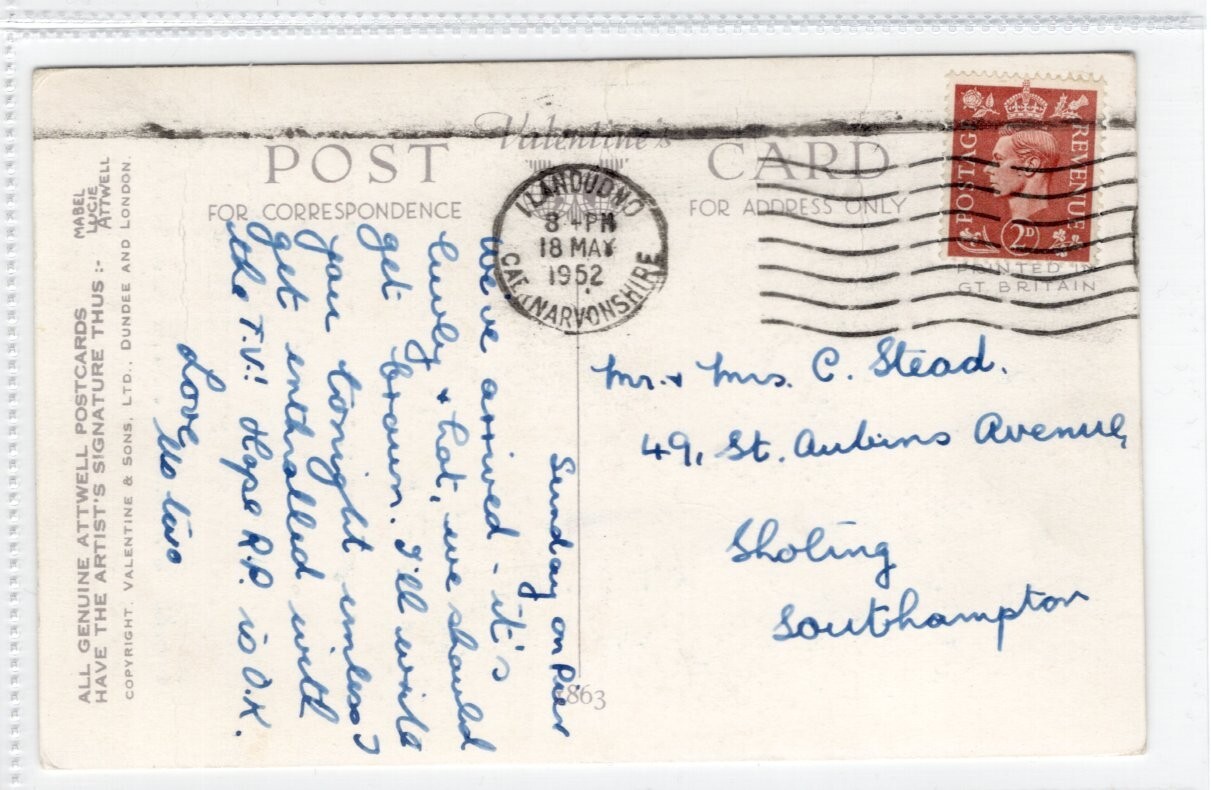 Valentine's
POST CARD
FOR CORRESPONDENCE
FOR ADDRESS ONLY
LLANDUDNO
8 - PM
18 MAY
1952
CAERNARVONSHIRE
POSTAGE
REVENUE
2D
PRINTED IN
GT. BRITAIN
Sunday on Pier
We've arrived - it's
lovely & hot, we should
get brown. I'll write
you tonight unless I
get enthralled with
the T.V.! Hope R.P. is O.K.
Love
Us two
Mr. & Mrs. C. Stead.
49, St. Aubins Avenue,
Sholing
Southampton
863
ALL GENUINE ATTWELL POSTCARDS
HAVE THE ARTIST'S SIGNATURE THUS :-
MABEL
LUCIE
ATTWELL
COPYRIGHT. VALENTINE & SONS, LTD., DUNDEE AND LONDON.